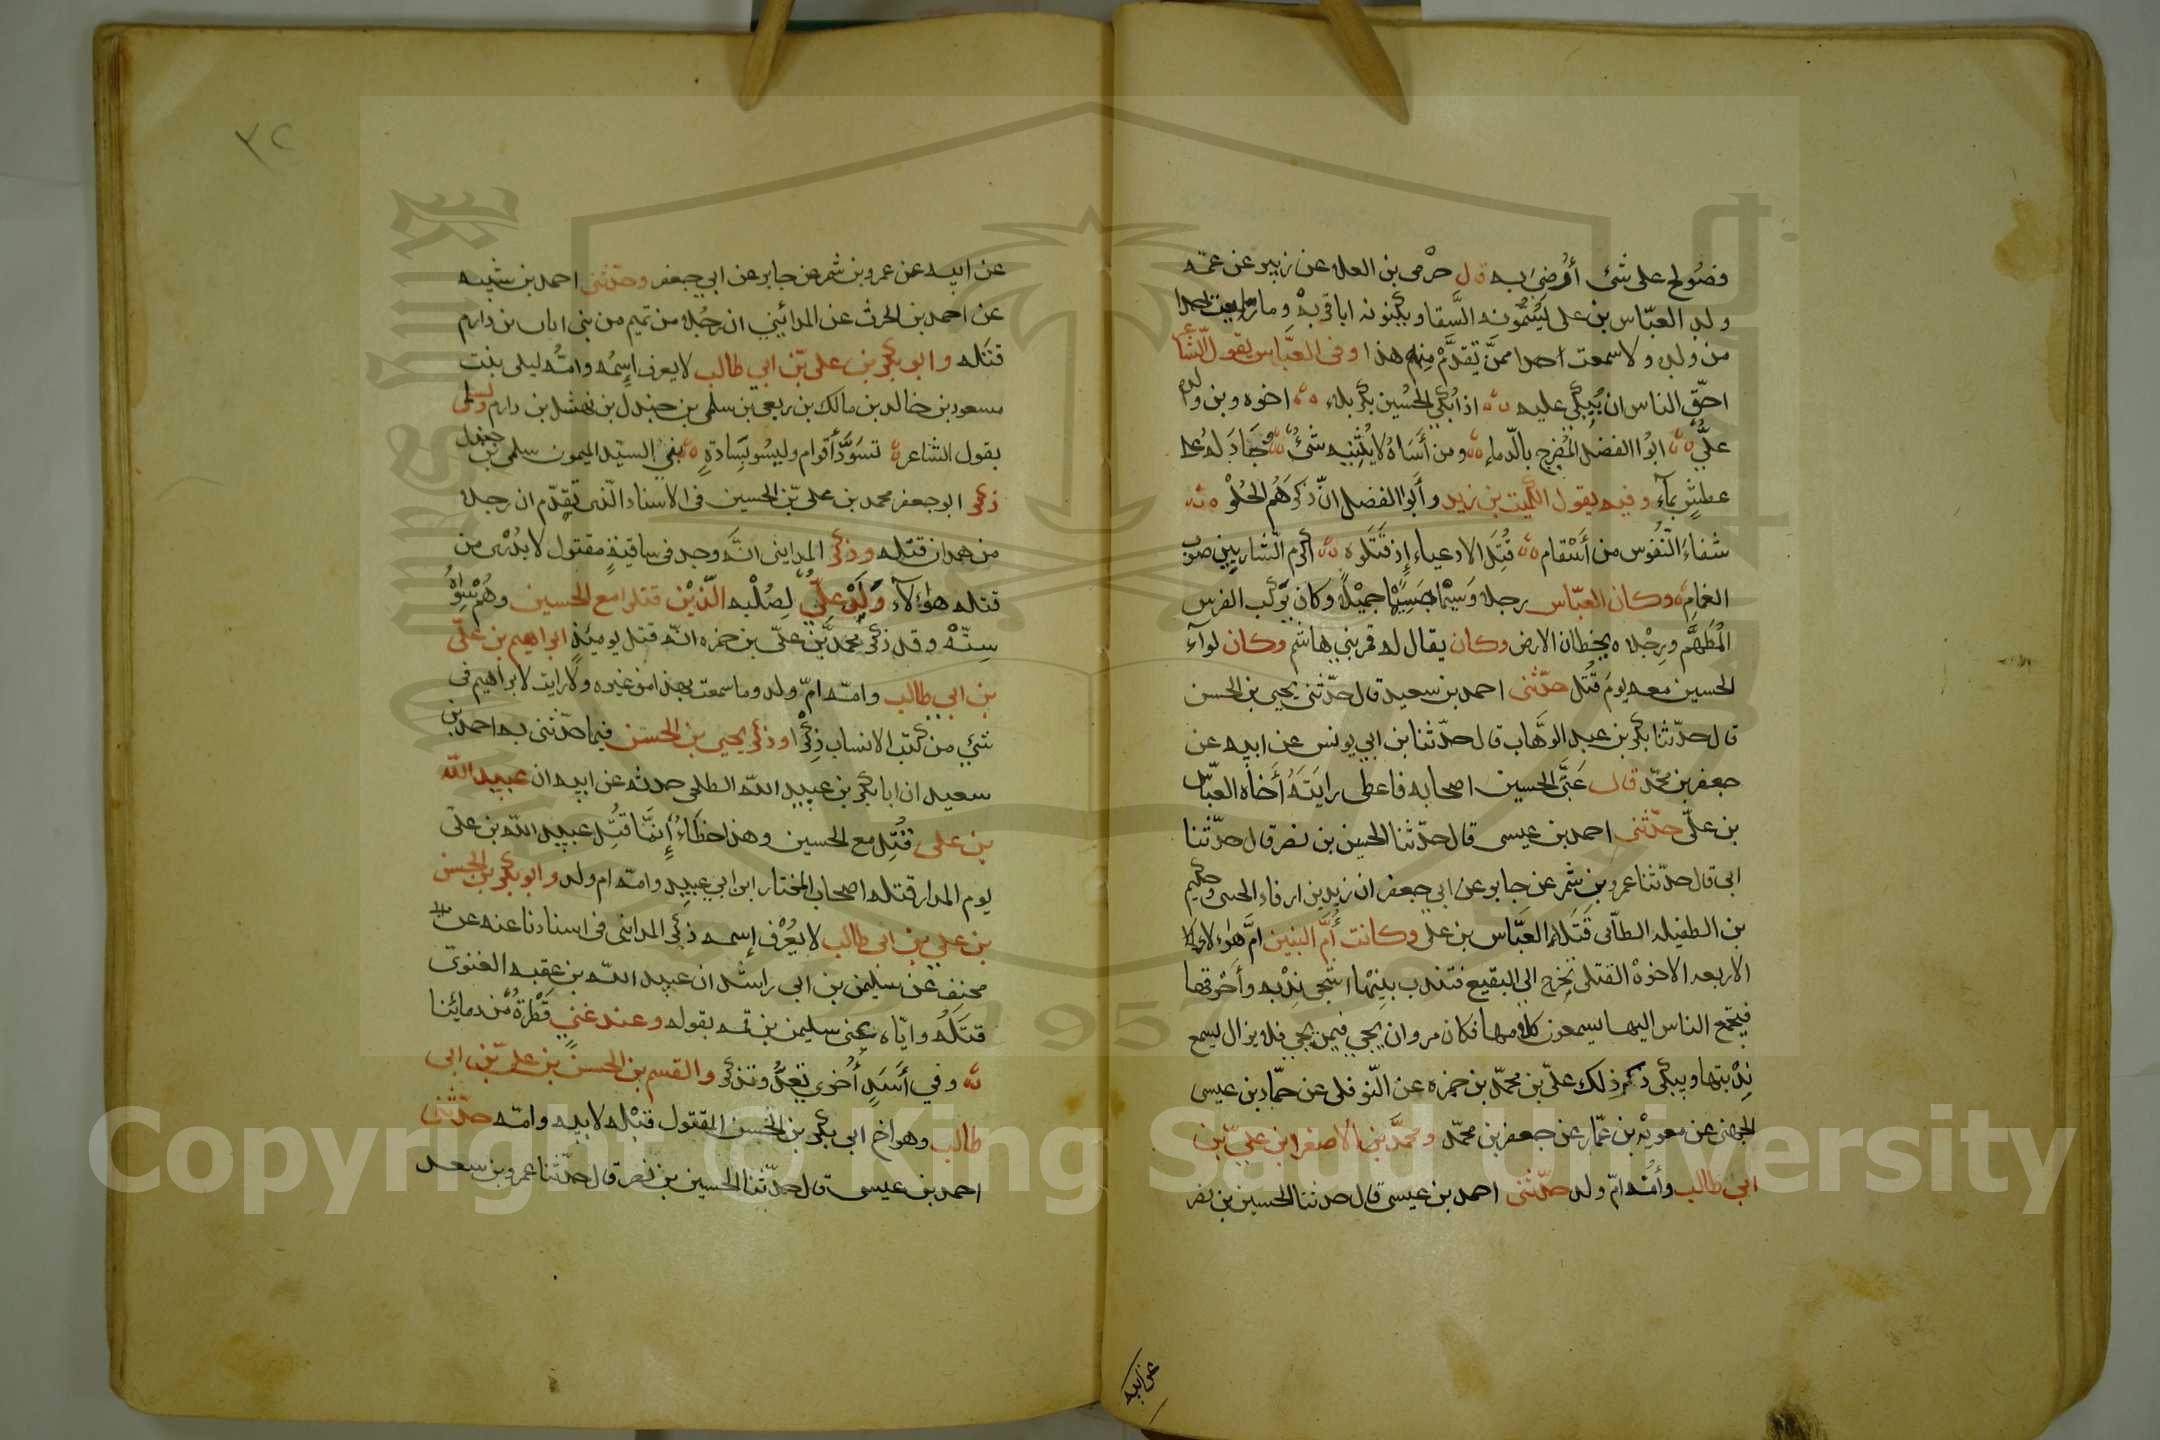 فصُولح على شئ أُرضِىَ به قال حرْمى بن العلا عن زبير عن عمّه
ولد العبّاس بن على يُسمُّونه السَّقا ويكنونه ابا قربهْ وما رايت احدا
من ولده ولا سمعت احدا ممنَّ تقدَّمْ منهم هذا وفى العبَّاس يقول الشَّا
احقّ الناس ان يُبكى عليه اذا بُكى الحُسين بكربلاء اخوه وبن ولد
علىٌّ ابوُا الفضل المُضرج بالدّماء ومن أَسَاهُ لا يُثنيه شئٌ وجَادَ له على
عطشٍ بماءِ وفيه يقول الكميت بن زيد وأَبوُا الفضل انَّ ذكرَهُم الحُلوْ
شفاءَ النّفُوس من أسْتقام قُتلَ الادعياء إذ قَتَلوه أكرم الشاربين صوب
الغمامِ وكان العبّاس رجلا وَسيْما جَسيْما جميْلًا وكان يَركب الفرس
المُطَهَّم ورِجْلاه يخطان الارض وكان يقال له قمر بنى هاشم وكان لوآء
الحسين معه يومَ قُتُل حدّثنى احمد بن سعيد قال حدّثنى يحيى بن الحسن
قال حدّثنا بكر بن عبد الوَهَّاب قال حدّثنا بن ابى يونس عن ابيه عن
جعفر بن محمّد قال عَبَّى الحسين اصحابه فاعطى رايَتَهُ أَخاه العبّاس
بن علىّ حدّثنى احمد بن عيسى قال حدّثنا الحسين بن نصر قال حدّثنا
ابى قال حدّثنا عمرو بن شمر عن جابر عن ابى جعفر ان زيد بن ارقاد الجبى وحكيم
بن الطفيل الطآئى قَتَلا العَبَّاس بن على وكانت أُمَّ البنين امَّ هؤلاء
الاربعه الاخوهْ القتلى تخرج الى البقيع فتندب بنيْها اشجى ندْبه وأحْرقها
فيجتمع الناس اليها يسمعون كلامها فكان مروان يجى فيمن يجى فلا يزال يسمع
نِدْبتها ويبكى ذكر ذلك علىّ بن محمّد بن حمزه عن النّوفلى عن حمّاد بن عيسى
الجهنى عن معويْة بن عمّار عن جعفر بن محمّد ومحمَّد بن الاصغر ابن علىّ بن
ابى طالب وأُمُّه امّ ولد حدّثنى احمد بن عيسى قال حدثنا الحسين بن نصر
عن ابيه
٣٢
عن ابيه عن عمرو بن شمر عن جابر عن ابى جعفر وحدّثنى احمد بن شيبه
عن احمد بن الحرث عن المدائينى ان رجُلا من تميم من بنى ابان بن دارم
قتَله وابو بكر بن على بّن ابى طالب لا يعرف إِسمُه وامُّه ليلى بنت
مسعود بن خالد بن مالك بن ربعى بن سلمى بن جندل بن نهشل بن دارم ولسلمى
يقول الشاعر تسَوَّد أَقوام وليسُو بسَادةٍ بنى السيّد الميمون سلمى بن جندل
ذكرَ ابو جعفر محمد بن على بّن الحسين فى الاسناد الّذى تقدّم ان رجلا
من همدان قتله وذكر المداينى انَّه وجد فى ساقيةٍ مقتول لا يدْرى من
قتله هؤلآء وَلَدْ علىٌّ لِصُلْبه الّذيْن قتلوا مع الحسين وهُمْ
ستّه وقد ذكر محمدَّ بّن علىّ بن حمزه انّه قتل يومئذٍ ابراهيم بن علىّ
بن ابى طالب وامّه امّ ولد وما سمعت بهذا من غيره ولا رايت لابراهيم فى
شئ من كُتب الانساب ذِكْرًا وذكر يحيى بن الحسَن فيما حدّثنى به احمد بن
سعيد ان ابا بكر بن عبيد الله الطلحى حدثه عن ابيه ان عبيد الله
بن على قُتُل مع الحسين وهذا خطَاءُ إنمَّا قتُل عبيد الله بن على
يوم المدار قتله اصحاب المختار ابن ابى عبيد وامّه ام ولد وابو بكر بن الحسن
بن على بن ابى طالب لا يعُرف إسمه ذكر المداينى فى اسنادنا عنه عن ابى
مخنِف عن سليمن بن ابى راشد ان عبد الله بن عقبه الغنوى
قتَلَه وايّاه يعنى سليمن بن قته بقوله وعند غنى قَطْرةُ من دمائنا
وفى أَسَدٍ أُخرى تعدُّ وتذكر والقسم بن الحسن بن علىّ بن ابى
طالب وهو اخ ابى بكر بن الحسن المقتول قبْله لابيه وامّه حدّثنى
احمد بن عيسى قال حدّثنا الحسين بن نصر قال حدّثنا عمرو بن سعد
Copyright © King Saud University
1957